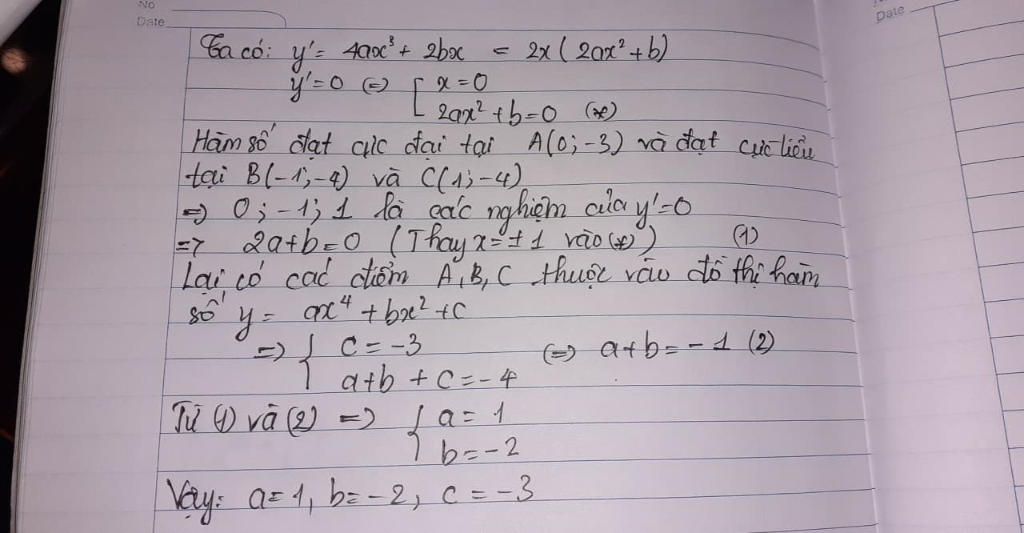 No
Date
Date
Ta có: y' = 4ax³ + 2bx = 2x (2ax² + b)
y' = 0 (=) [ x = 0
2ax² + b = 0 (*)
Hàm số đạt cực đại tại A(0; -3) và đạt cực tiểu
tại B(-1; -4) và C(1; -4)
=> 0; -1; 1 là các nghiệm của y' = 0
=> 2a + b = 0 (Thay x = ± 1 vào (*)) (1)
Lại có các điểm A, B, C thuộc vào đồ thị hàm
số y = ax⁴ + bx² + c
=> { c = -3 (=) a + b = -1 (2)
a + b + c = -4
Từ (1) và (2) => { a = 1
b = -2
Vậy: a = 1, b = -2, c = -3